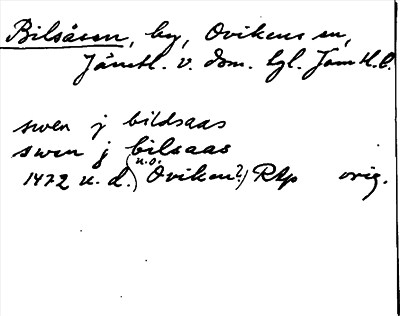 Bilsåsen, by, Ovikens sn,
Jämtl. v. dom. hgl. Jämtl. l.
swen j bildsaas
swen j bilsaas
1472 u. d. (u.o. Oviken?) RAp orig.